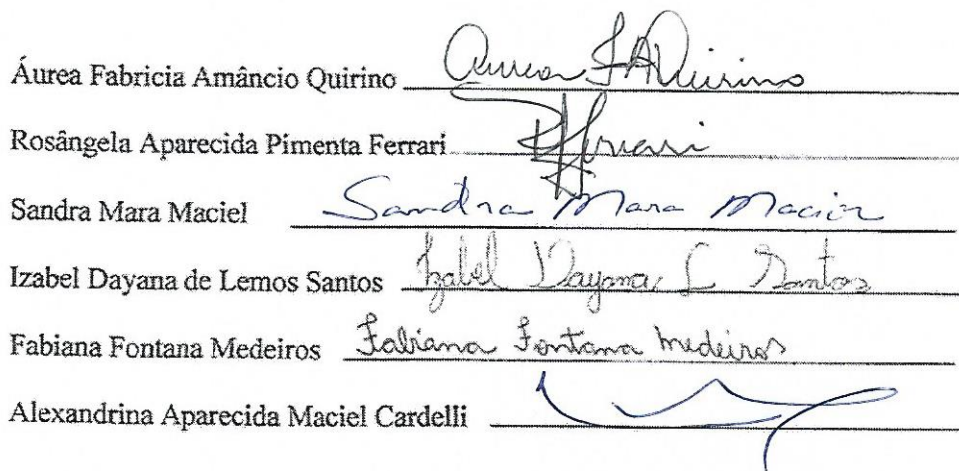 Áurea Fabricia Amâncio Quirino Aurea F A Quirino
Rosângela Aparecida Pimenta Ferrari RAFerrari
Sandra Mara Maciel Sandra Mara Maciel
Izabel Dayana de Lemos Santos Izabel Dayana L Santos
Fabiana Fontana Medeiros Fabiana Fontana Medeiros
Alexandrina Aparecida Maciel Cardelli